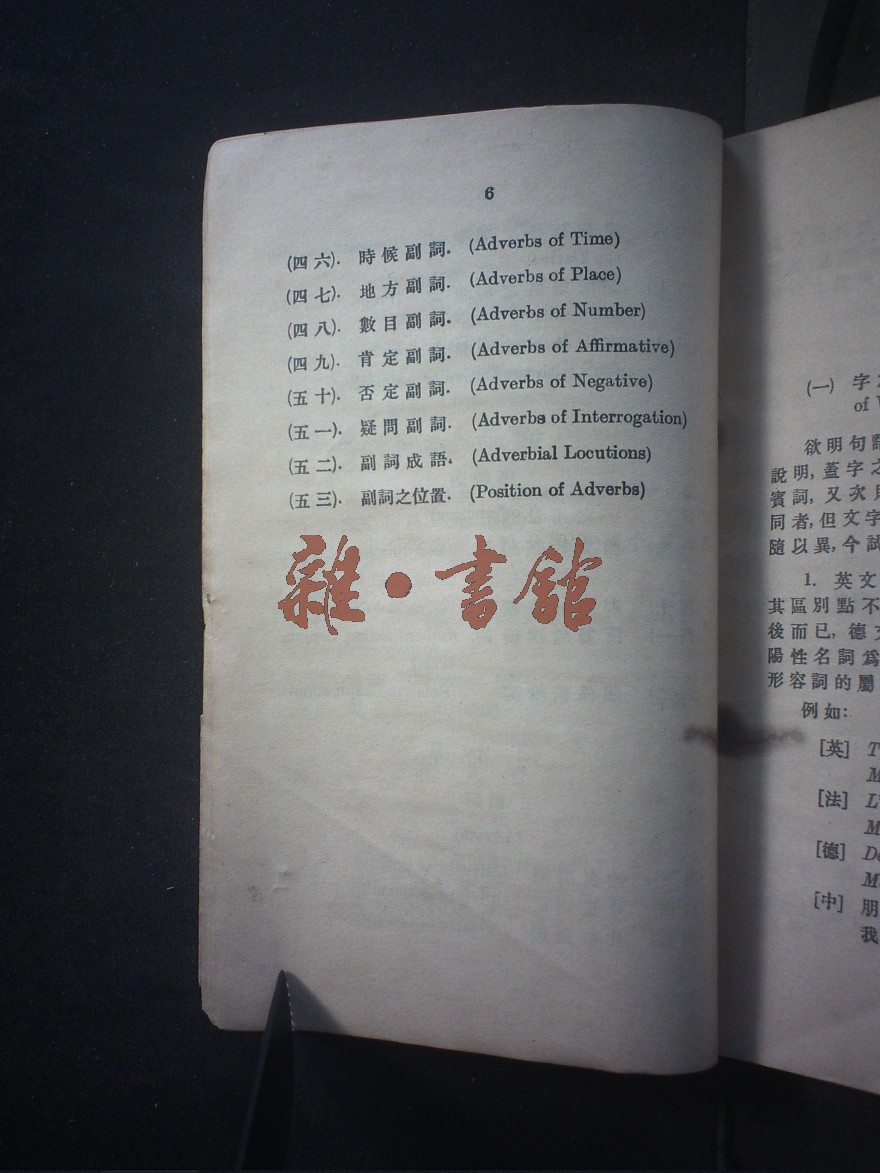 6
(四六). 時候副詞. (Adverbs of Time)
(四七). 地方副詞. (Adverbs of Place)
(四八). 數目副詞. (Adverbs of Number)
(四九). 肯定副詞. (Adverbs of Affirmative)
(五十). 否定副詞. (Adverbs of Negative)
(五一). 疑問副詞. (Adverbs of Interrogation)
(五二). 副詞成語. (Adverbial Locutions)
(五三). 副詞之位置. (Position of Adverbs)
雜·書館
(一) 字
of
欲明句
說明, 蓋字之
賓詞, 又次
同者, 但文字
隨以異, 今試
1. 英文
其區別點不
後而已, 德
陽性名詞爲
形容詞的屬
例如:
[英] T
M
[法] L'
M
[德] De
M
[中] 朋
我